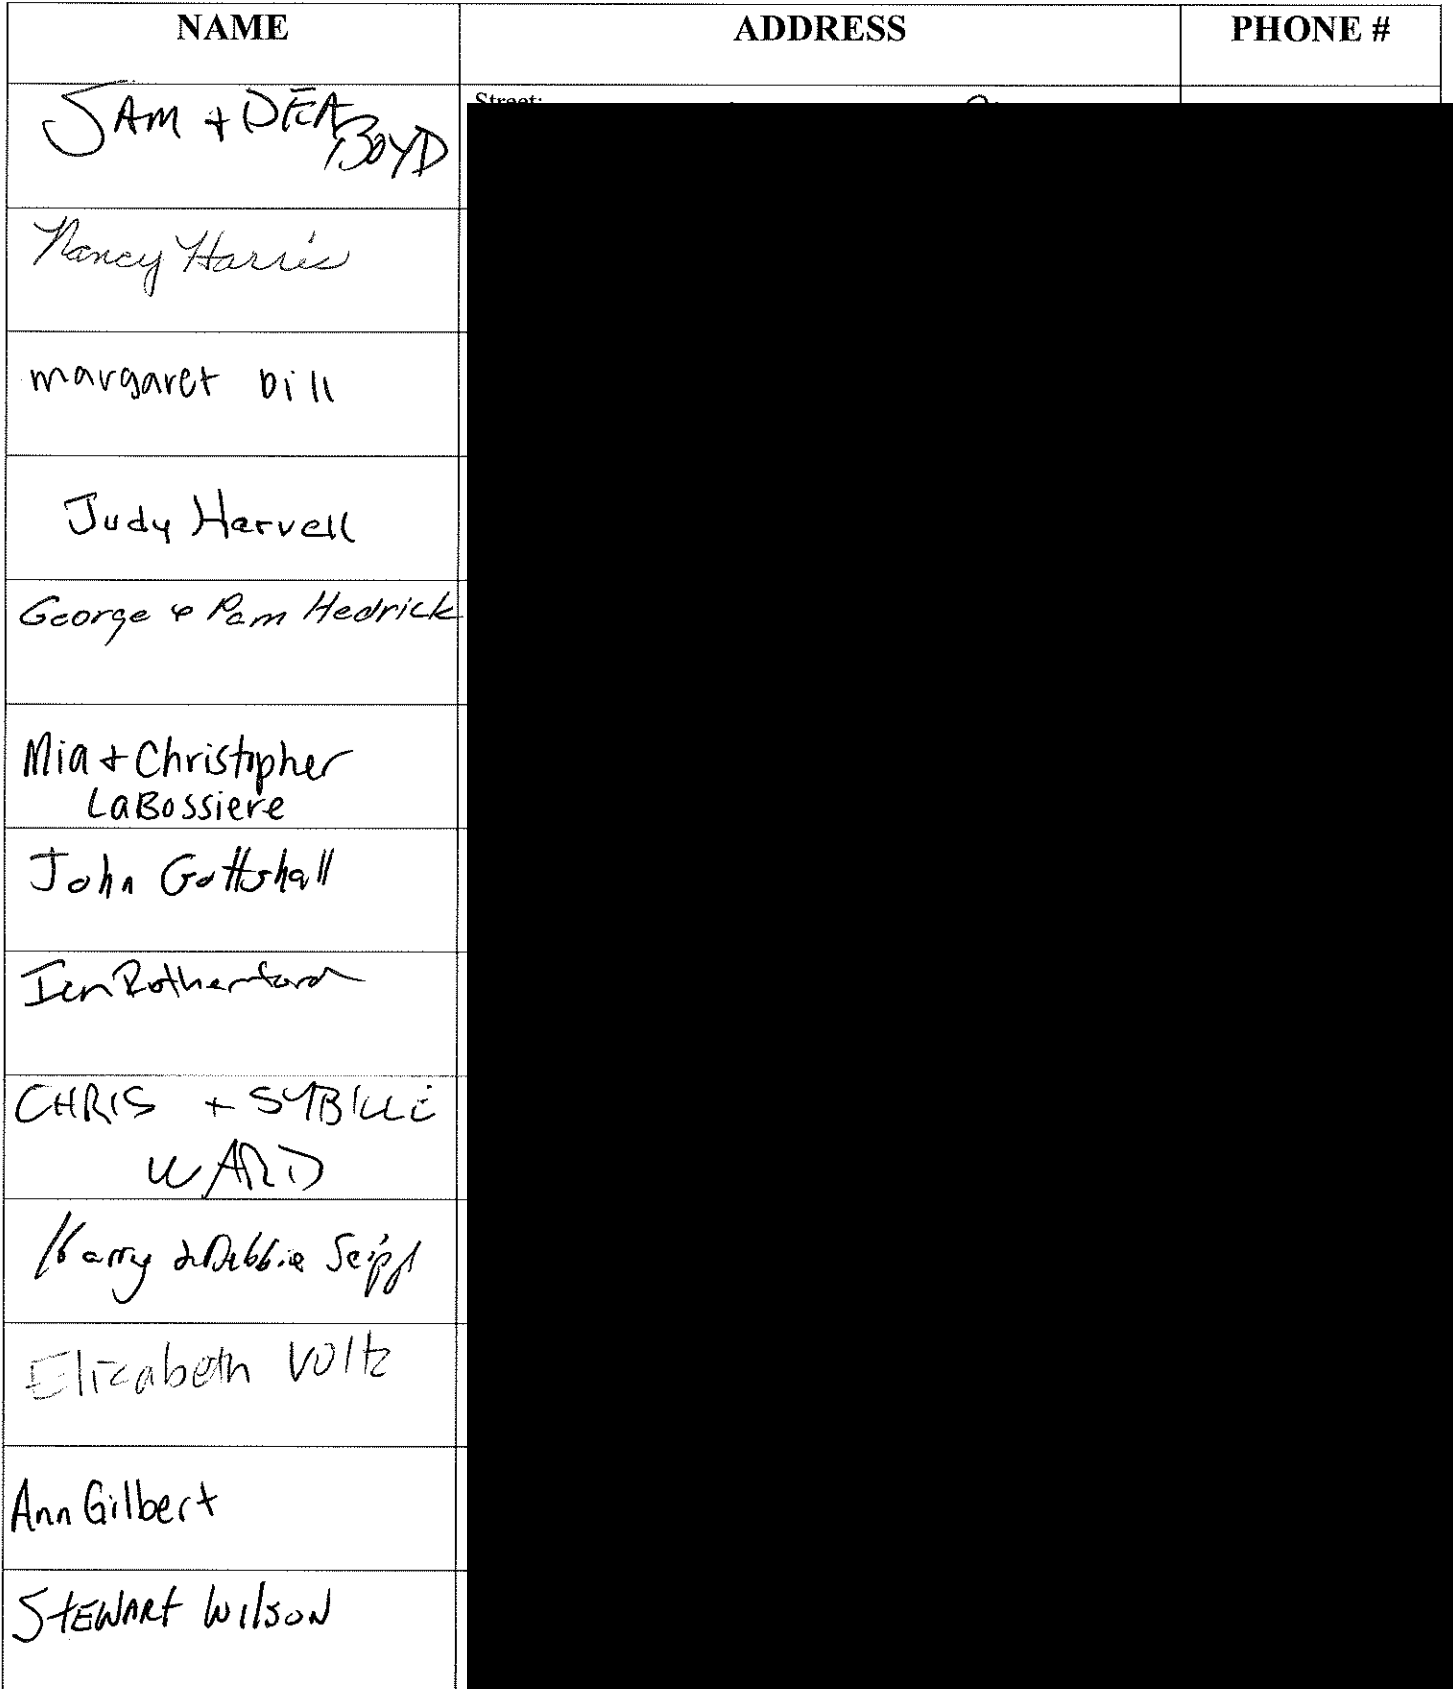 NAME ADDRESS PHONE #
Street:
SAM + DEA
BOYD
Nancy Harris
margaret Dill
Judy Harvell
George & Pam Hedrick
Mia + Christopher
LaBossiere
John Gottshall
Rotherford
CHRIS + SYBILLE
WARD
& Debbie
Elizabeth Voltz
Ann Gilbert
STEWART WILSON